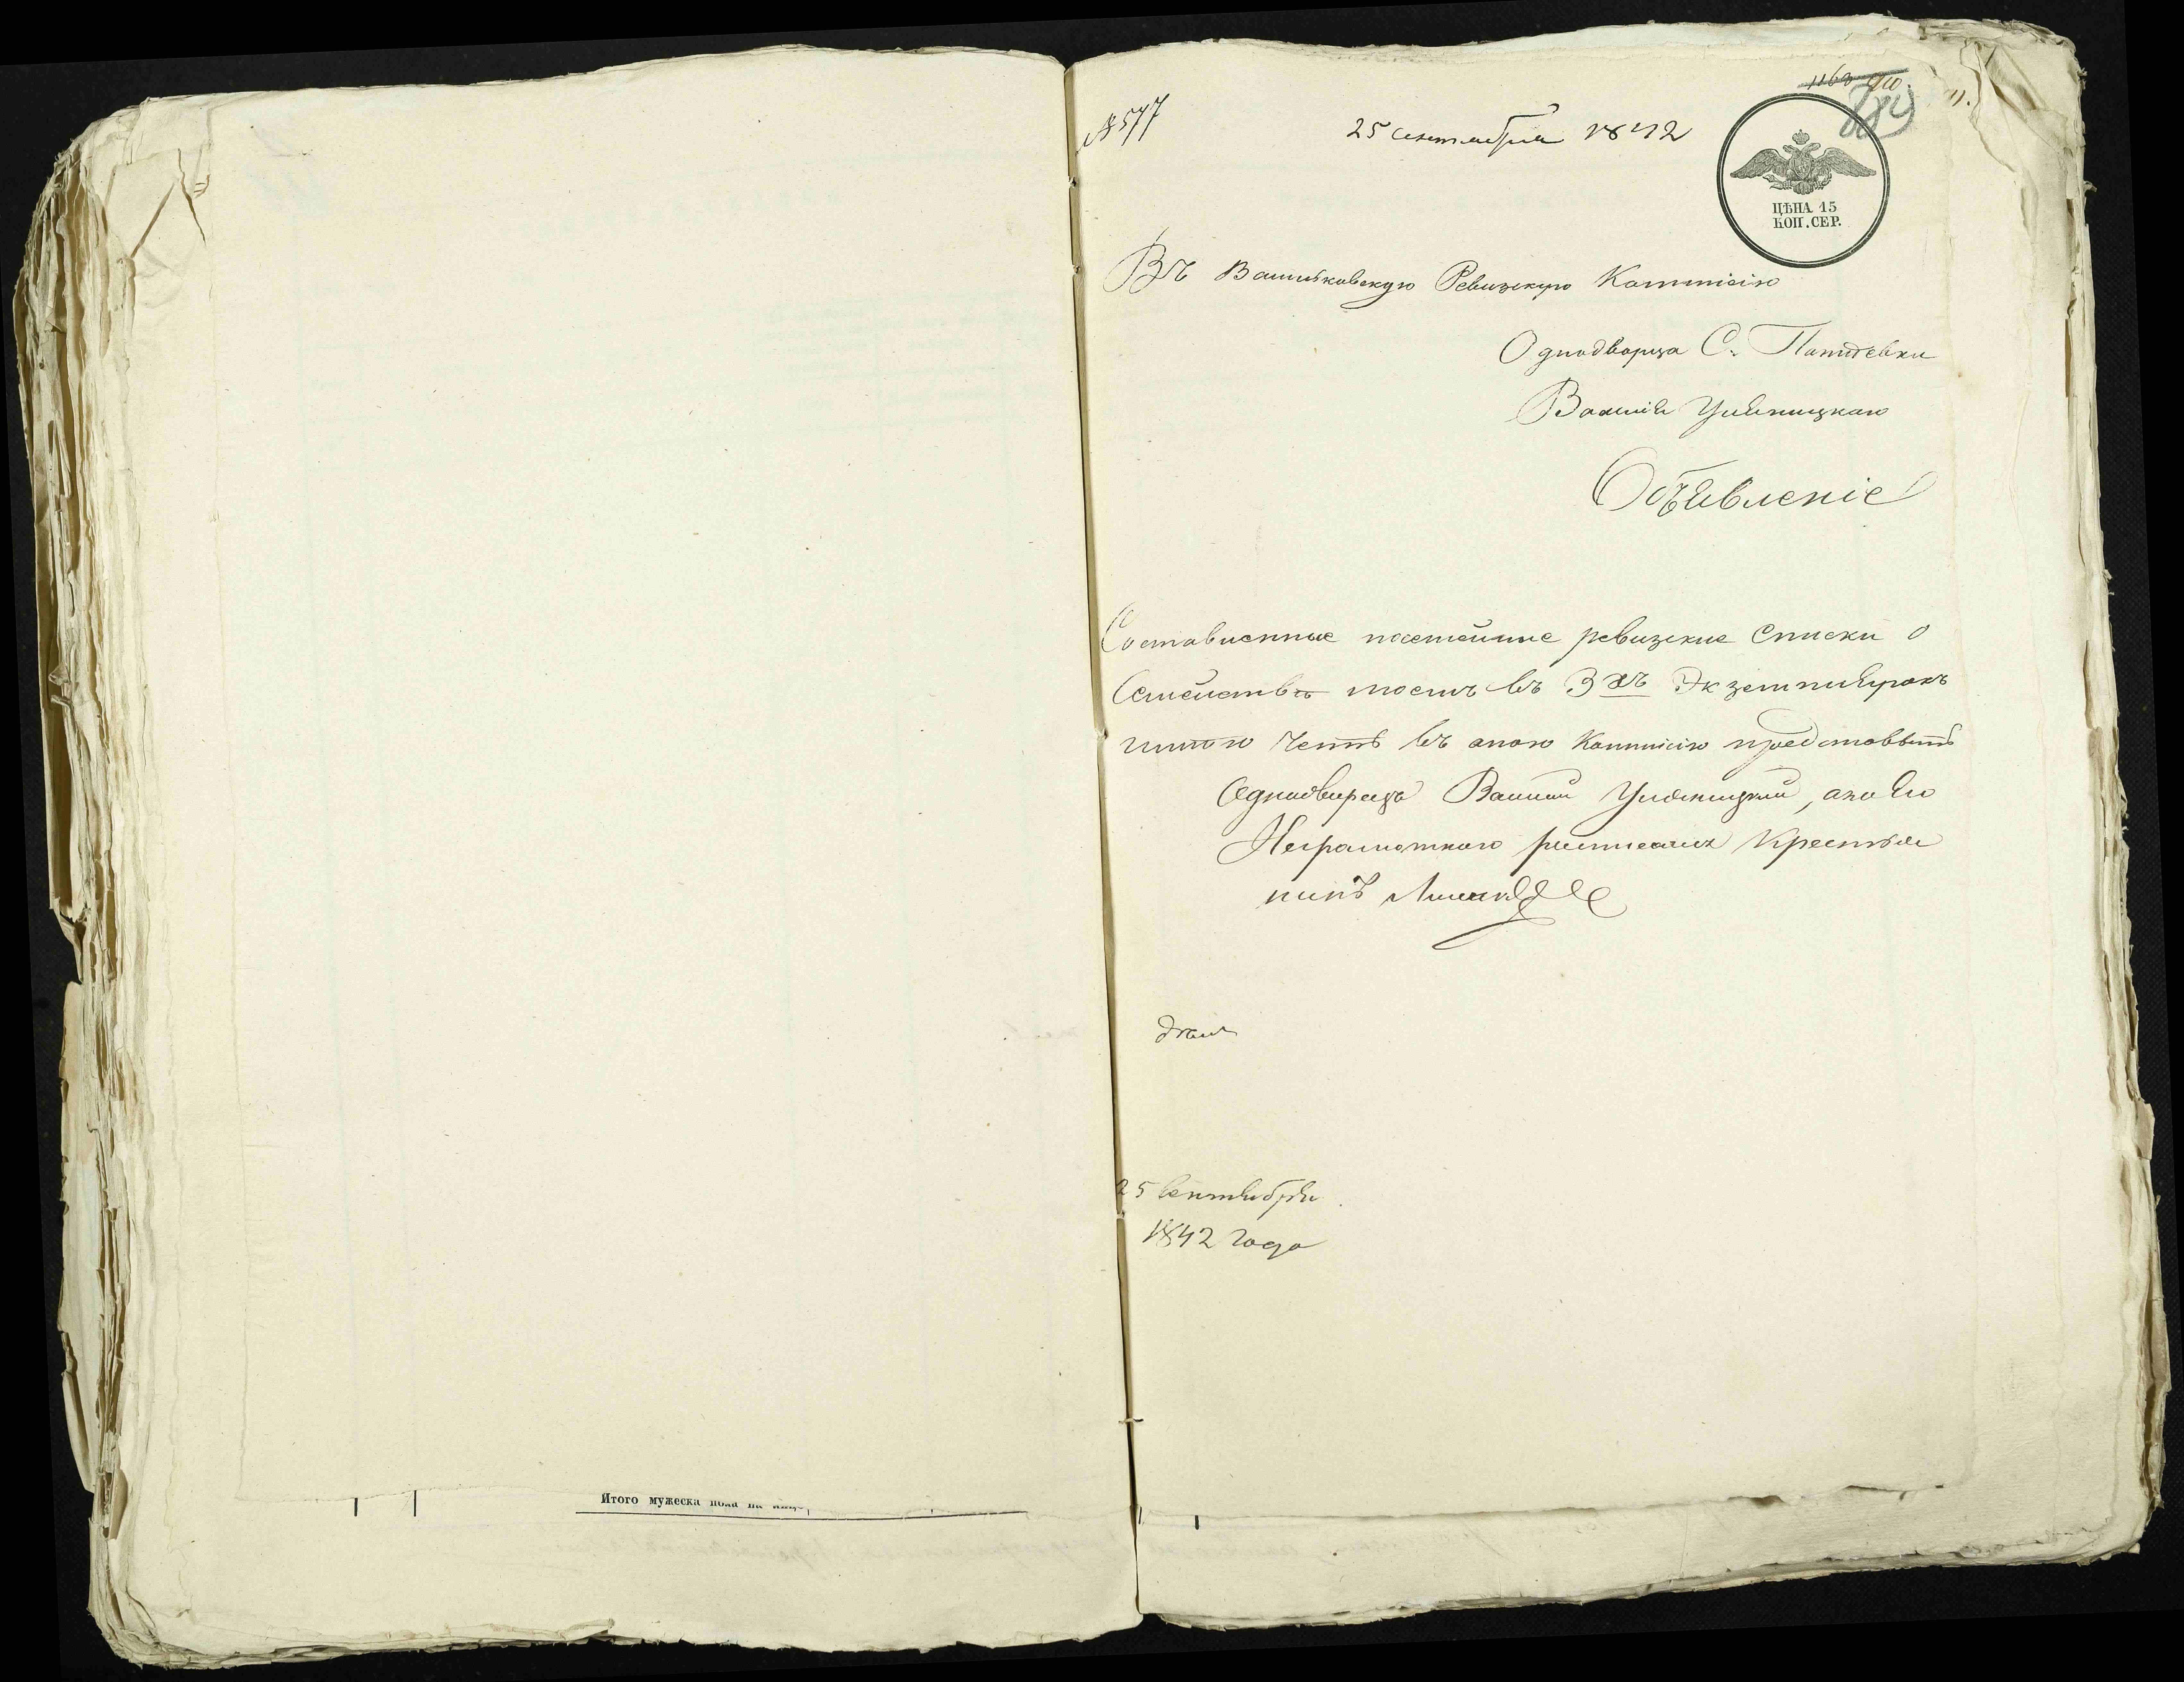 № 577
25 сентября 1842
11.
ЦѢНА 15
КОП. СЕР.
Въ Васильковскую Ревизскую Коммисію
Однодворца С.
Василія
Объявленіе
Составленные посемейные ревизские списки о
Семействѣ моемъ въ 3хъ Экземплярахъ
имѣю честь въ оною Коммисію представить
Однодворецъ Василій, а по Его
Неграмотного росписался Крестья
нинъ
25 Сентября
1842 Года
Итого мужеска пола на лицо